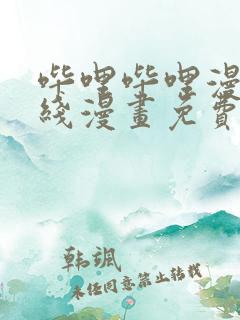 哔哩哔哩漫
线漫畫免費
韩飒
未经同意禁止转载